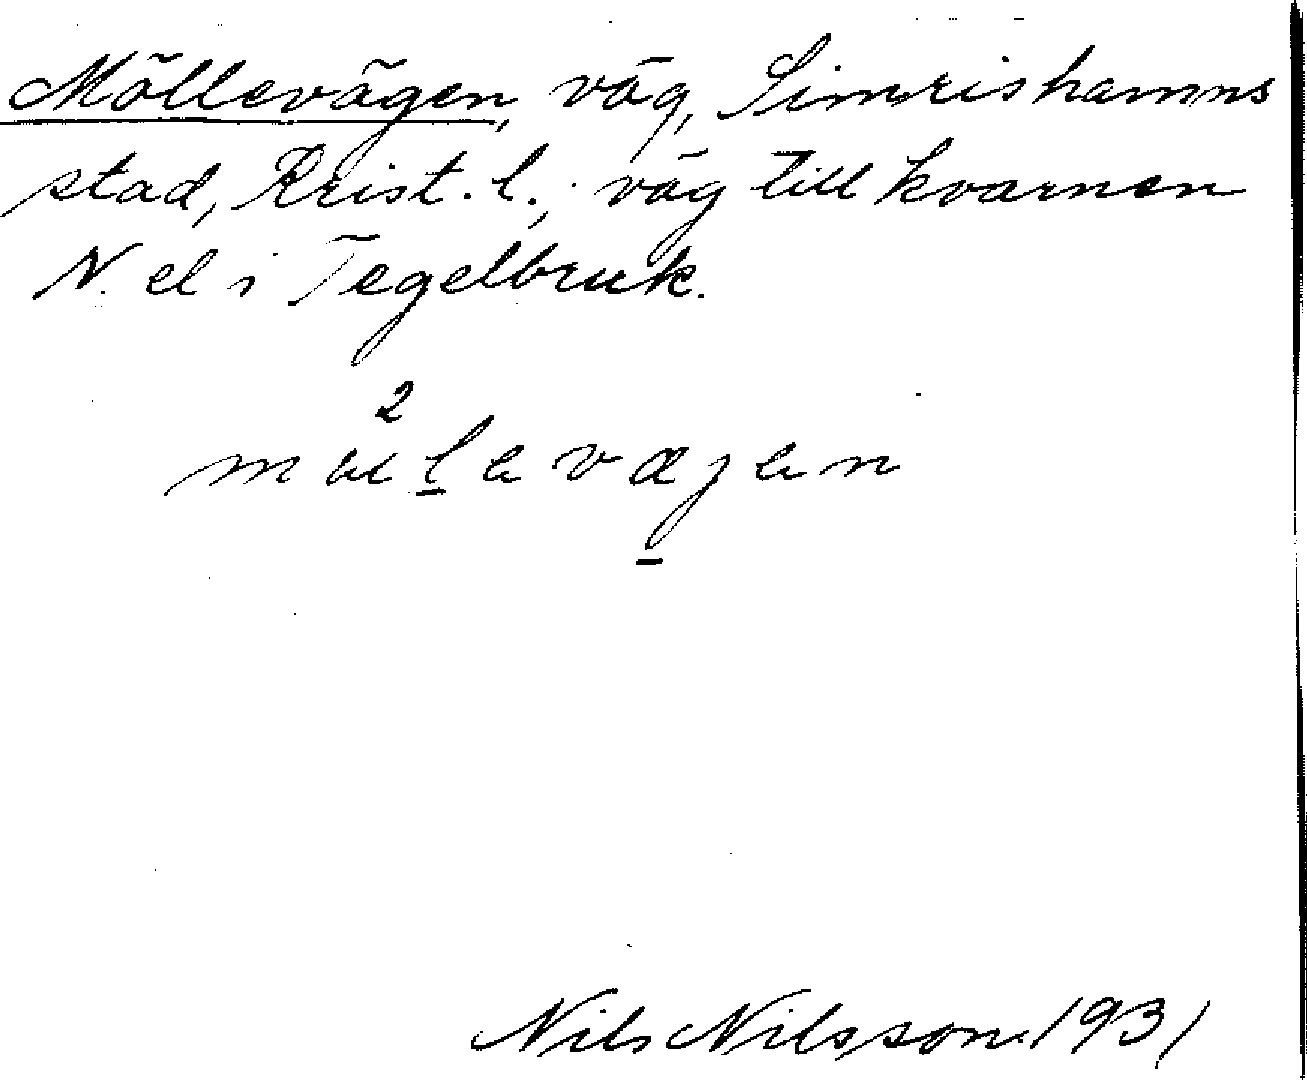 Möllevägen, väg, Simrishamns
stad, Krist. l.; väg till kvarnen
N. el i Tegelbruk.
2
vægen
Nils Nilsson. 1931